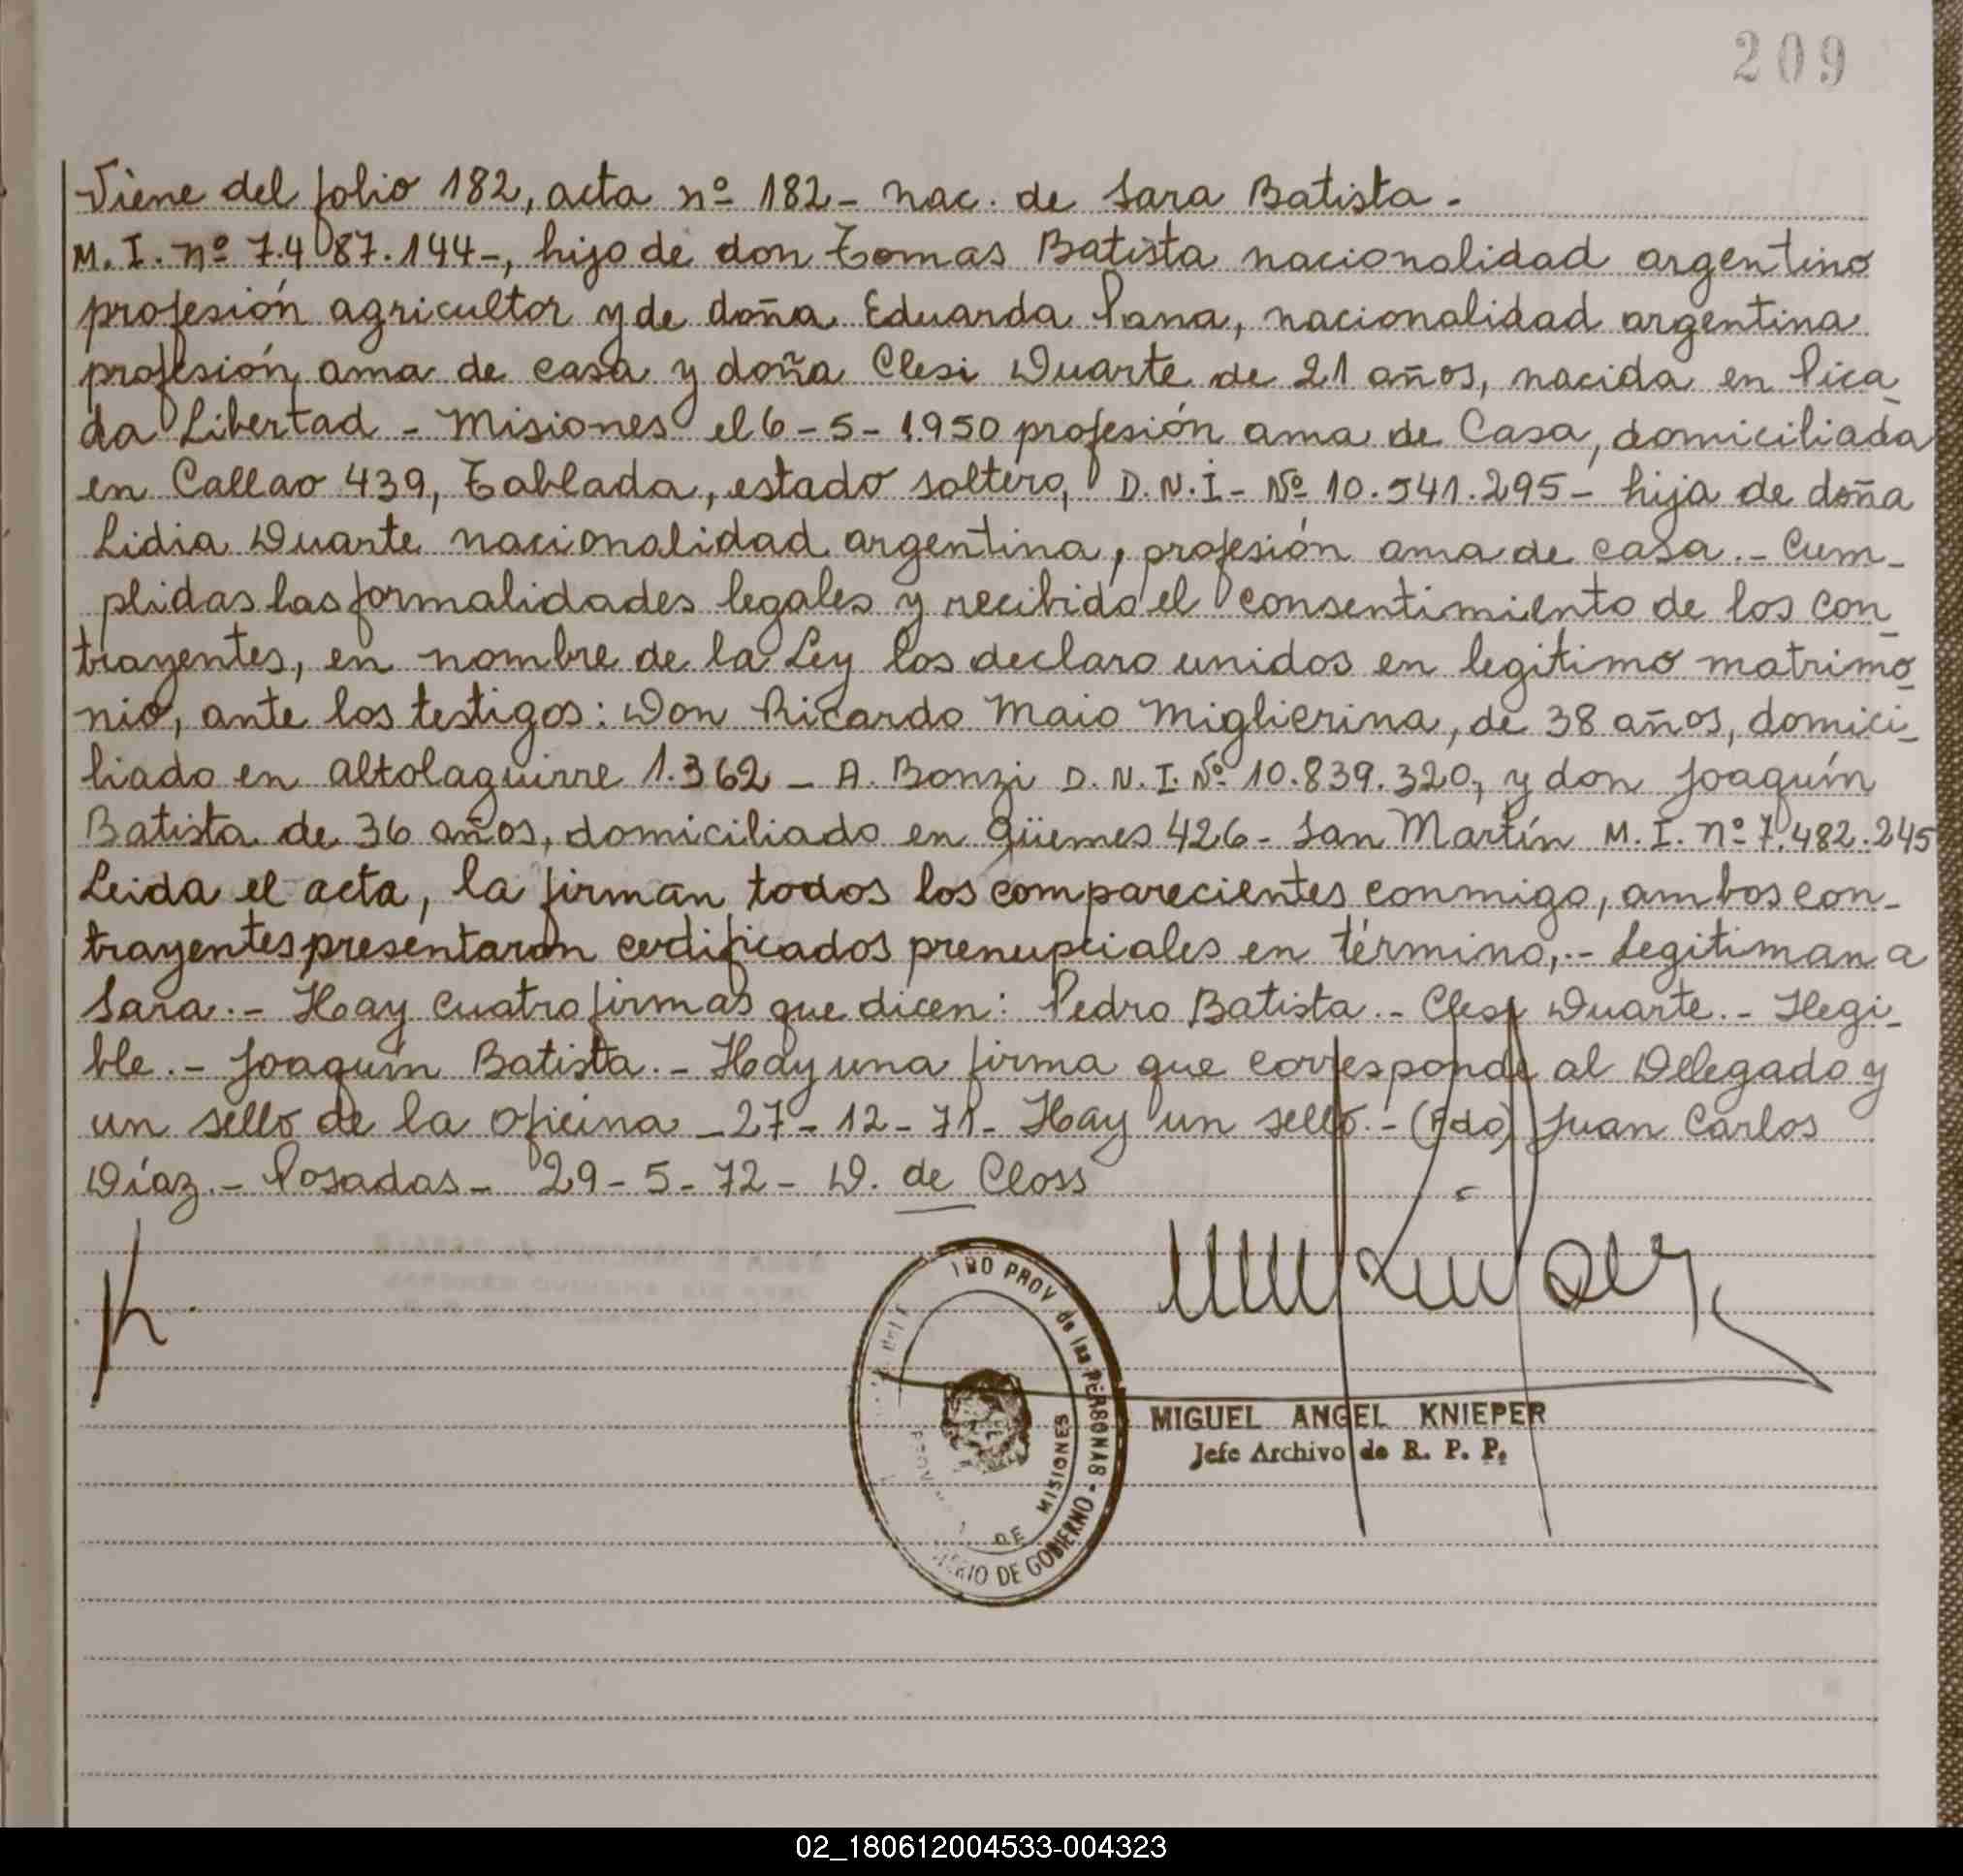 209
Viene del folio 182, acta nº 182- nac. de Sara Batista.
M. I. nº 7.487.144-, hijo de don Tomas Batista nacionalidad argentino
profesión agricultor y de doña Eduarda Pana, nacionalidad argentina
profesión ama de casa y doña Clesi Duarte de 21 años, nacida en Pica_
da Libertad - Misiones el 6-5-1950 profesión ama de Casa, domiciliada
en Callao 439, Tablada, estado soltero, D.N.I- Nº 10.541.295- hija de doña
Lidia Duarte nacionalidad argentina, profesión ama de casa.- Cum_
plidas las formalidades legales y recibido el consentimiento de los con_
trayentes, en nombre de la Ley los declaro unidos en legitimo matrimo_
nio, ante los testigos: Don Ricardo Maio Miglierina, de 38 años, domici_
liado en Altolaguirre 1.362 - A. Bonzi D.N.I. Nº 10.839.320, y don Joaquín
Batista de 36 años, domiciliado en Güemes 426- San Martín M.I. nº 7.482.245
Leida el acta, la firman todos los comparecientes conmigo, ambos con_
trayentes presentaron certificados prenupciales en término,.- Legitiman a
Sara.- Hay cuatro firmas que dicen: Pedro Batista.- Clesi Duarte.- Ilegi_
ble.- Joaquín Batista.- Hay una firma que corresponde al Delegado y
un sello de la oficina -27-12-71- Hay un sello.- (Fdo) Juan Carlos
Díaz.- Posadas- 29-5-72- D. de Closs
PROV de las PERSONAS - 
DE GOBIERNO
DE MISIONES
MIGUEL ANGEL KNIEPER
Jefe Archivo de R. P. P.
02_180612004533-004323